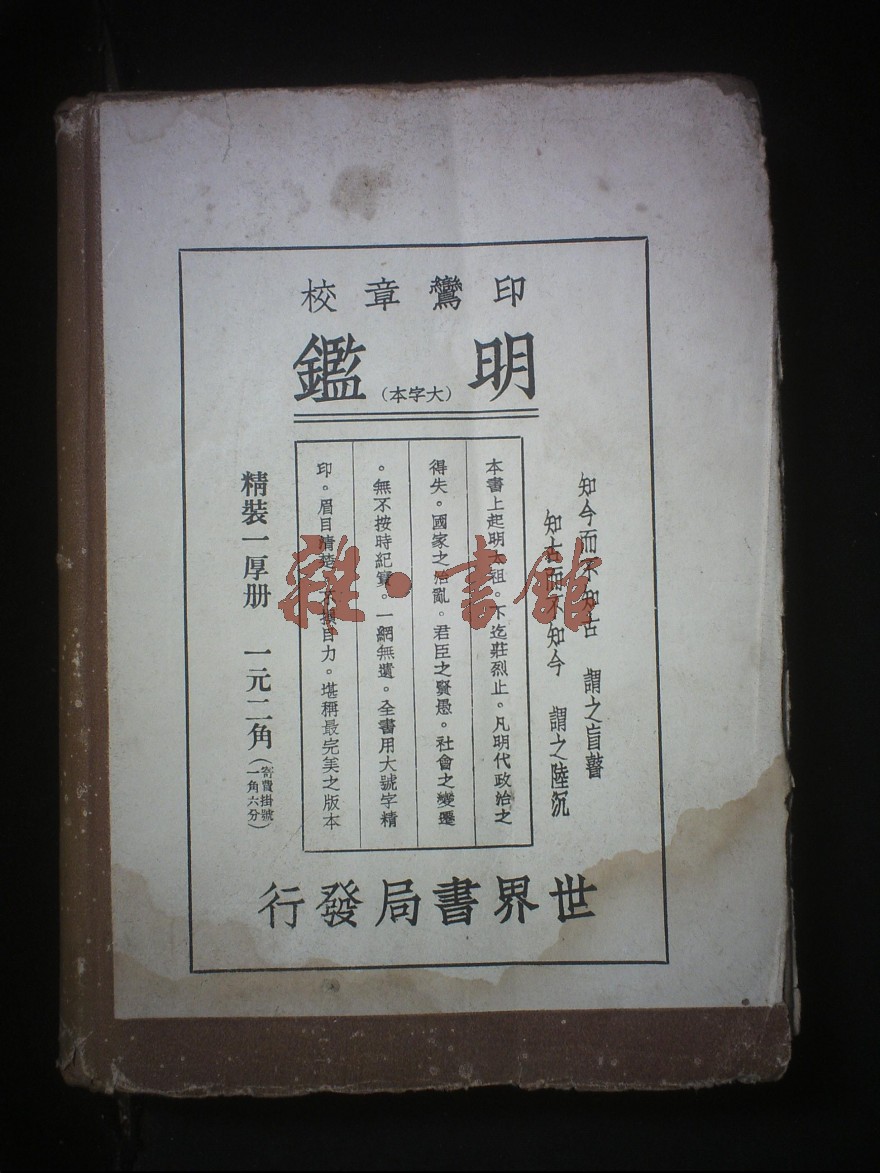 印鸞章校
明鑑(大字本)
知今而不知古 謂之盲瞽
知古而不知今 謂之陸沉
本書上起明太祖。下迄莊烈止。凡明代政治之
得失。國家之治亂。君臣之賢愚。社會之變遷
。無不按時紀實。一網無遺。全書用大號字精
印。眉目清楚。不損目力。堪稱最完美之版本
精裝一厚册 一元二角(寄費掛號一角六分)
世界書局發行
雜·書館